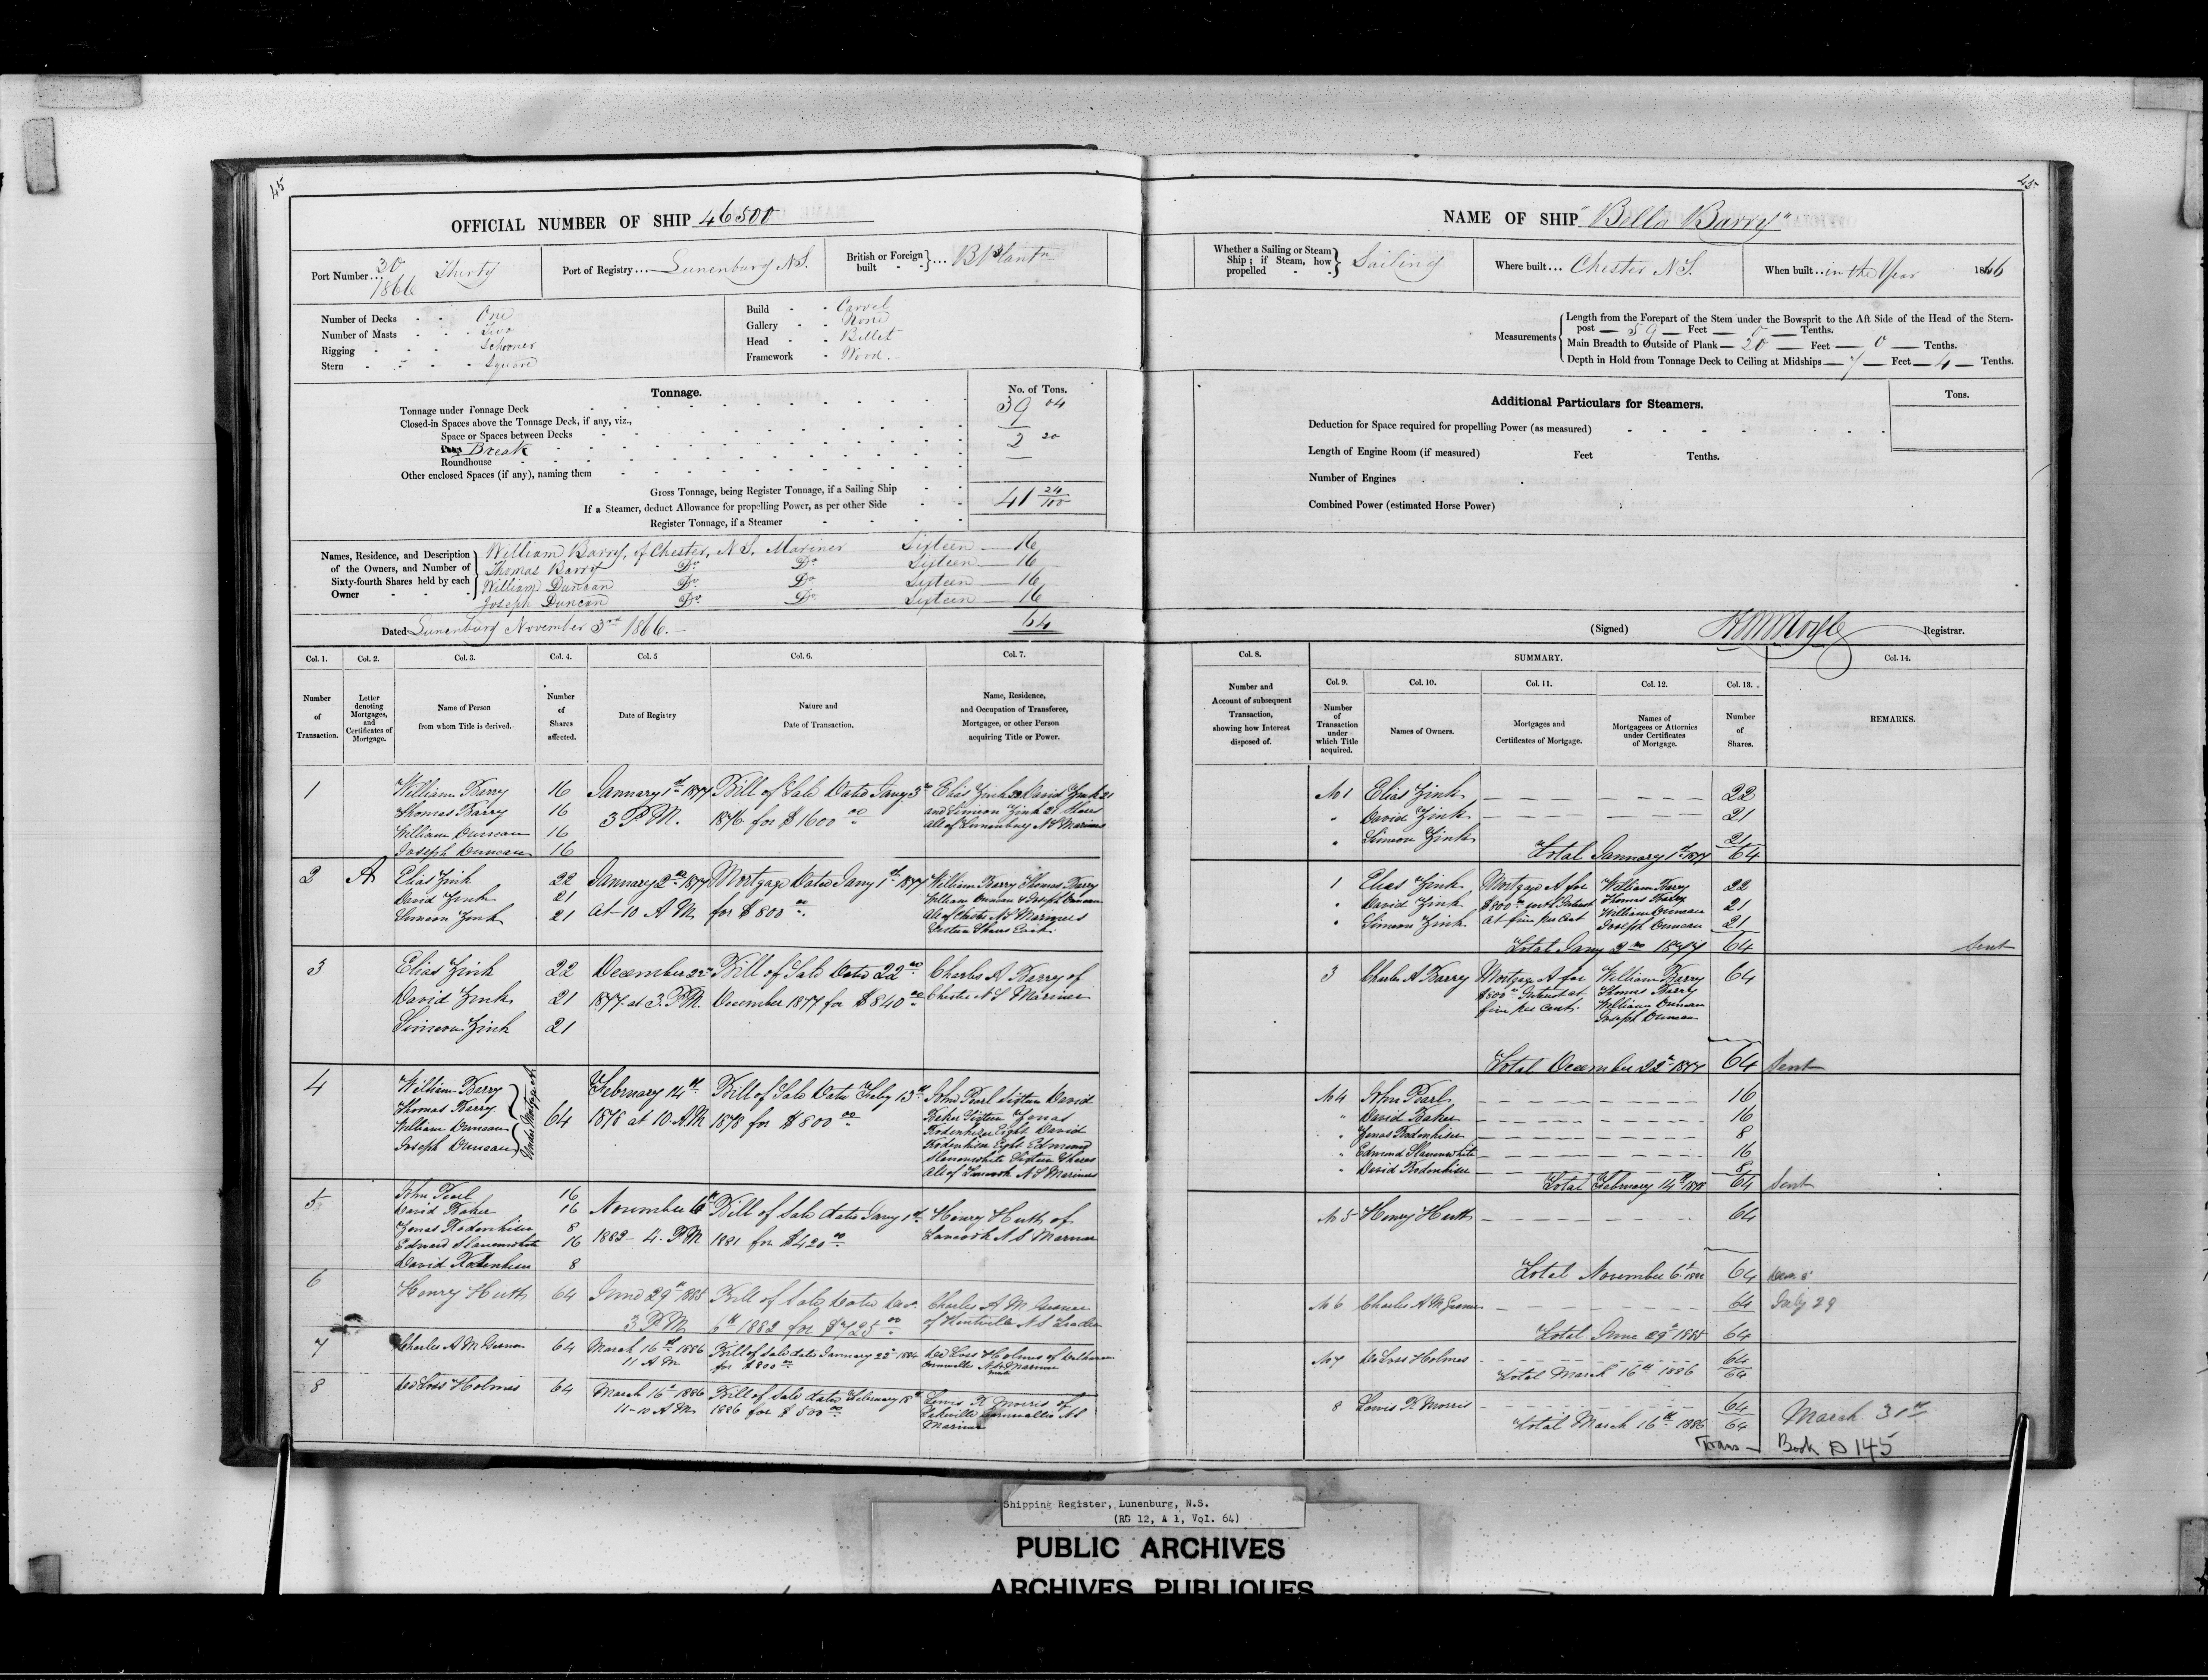 45
OFFICIAL NUMBER OF SHIP 46500
Port Number... 30 Thirty
1866
Port of Registry... Lunenburg N.S.
British or Foreign built } ... B Plantn
Number of Decks - - One
Number of Masts - - Two
Rigging - - - Schooner
Stern - - - Square
Build - - Carvel
Gallery - - None
Head - - Billet
Framework - Wood.-
Tonnage.
No. of Tons.
Tonnage under Tonnage Deck 39 04
Closed-in Spaces above the Tonnage Deck, if any, viz.,
Space or Spaces between Decks —
Break 2 20
Roundhouse —
Other enclosed Spaces (if any), naming them
Gross Tonnage, being Register Tonnage, if a Sailing Ship 41 24/100
If a Steamer, deduct Allowance for propelling Power, as per other Side
Register Tonnage, if a Steamer
Names, Residence, and Description of the Owners, and Number of Sixty-fourth Shares held by each Owner
William Barry, of Chester, N.S. Mariner Sixteen — 16
Thomas Barry Do Do Sixteen — 16
William Duncan Do Do Sixteen — 16
Joseph Duncan Do Do Sixteen — 16
Dated Lunenburg November 3rd 1866.- 64
Col. 1. Col. 2. Col. 3. Col. 4. Col. 5 Col. 6. Col. 7.
Number of Transaction.
Letter denoting Mortgages, and Certificates of Mortgage.
Name of Person from whom Title is derived.
Number of Shares affected.
Date of Registry
Nature and Date of Transaction.
Name, Residence, and Occupation of Transferee, Mortgagee, or other Person acquiring Title or Power.
1 William Barry 16 January 1st 1877 Bill of Sale Dated Jany 3rd Elias Zink 22 David Zink 21
Thomas Barry 16 3 P.M. 1876 for $1600 00 and Simeon Zink 21 Shares
William Duncan 16 all of Lunenburg N S Mariners
Joseph Duncan 16
2 A Elias Zink 22 January 2nd 1877 Mortgage Dated Jany 1st 1877 William Barry Thomas Barry
David Zink 21 at 10 A M for $800 00 William Duncan & Joseph Duncan
Simeon Zink 21 all of Chester N S Mariners
Sixteen Shares Each
3 Elias Zink 22 December 22nd Bill of Sale Dated 22nd Charles A Barry of
David Zink 21 1877 at 3 P.M. December 1877 for $840 00 Chester N S Mariner
Simeon Zink 21
4 William Barry February 14th Bill of Sale Dated Feby 13th John Pearl Sixteen David
Thomas Barry 64 1878 at 10 A.M 1878 for $800 00 Baker Sixteen Jonas
William Duncan Rodenhiser Eight David
Joseph Duncan Rodenhiser Eight Edmond
Under Mortgage A
Slauenwhite Sixteen Shares
all of Lancook N S Mariners
5 John Pearl 16
David Baker 16 November 6th Bill of Sale dated Jany 1st Henry Huth of
Jonas Rodenhiser 8 1882 - 4. P.M 1881 for $420 00 Lancook N S Mariner
Edward Slauenwhite 16
David Rodenhiser 8
6 Henry Huth 64 June 29th 1885 Bill of Sale Dated Dec. Charles A M
3 P M 6th 1882 for $725 00 of Kentville N S Trader
7 Charles A M 64 March 16th 1886 Bill of Sale dated January 22nd 1884 De Loss Holmes of
11 A M for $800 00 Cornwallis N S Mariner
8 De Loss Holmes 64 March 16th 1886 Bill of Sale dated February 18th Lewis R Morris of
11-10 A M 1886 for $500 00 Cornwallis N S
Mariner
45
NAME OF SHIP "Bella Barry"
Whether a Sailing or Steam Ship; if Steam, how propelled } Sailing
Where built... Chester N.S.
When built... in the Year 1866
Measurements
Length from the Forepart of the Stem under the Bowsprit to the Aft Side of the Head of the Stern-
post — 59 — Feet — 0 — Tenths.
Main Breadth to Outside of Plank — 20 — Feet — 0 — Tenths.
Depth in Hold from Tonnage Deck to Ceiling at Midships — 7 — Feet — 4 — Tenths.
Additional Particulars for Steamers.
Tons.
Deduction for Space required for propelling Power (as measured)
Length of Engine Room (if measured) Feet Tenths.
Number of Engines
Combined Power (estimated Horse Power)
(Signed) Registrar.
Col. 8. SUMMARY. Col. 14.
Col. 9. Col. 10. Col. 11. Col. 12. Col. 13.
Number and Account of subsequent Transaction, showing how Interest disposed of.
Number of Transaction under which Title acquired.
Names of Owners.
Mortgages and Certificates of Mortgage.
Names of Mortgagees or Attornies under Certificates of Mortgage.
Number of Shares.
REMARKS.
No 1 Elias Zink 22
" David Zink 21
" Simeon Zink 21
Total January 1st 1877 64
1 Elias Zink Mortgage A for William Barry 22
" David Zink $800 00 with Interest Thomas Barry 21
" Simeon Zink at five per Cent William Duncan 21
Joseph Duncan
Total Jany 2nd 1877 64 Sent
3 Charles A Barry Mortgage A for William Barry 64
$800 00 Interest at Thomas Barry
five per Cent. William Duncan
Joseph Duncan
Total December 22nd 1877 64 Sent
No 4 John Pearl 16
" David Baker 16
" Jonas Rodenhiser 8
" Edmond Slauenwhite 16
" David Rodenhiser 8
Total February 14th 1878 64 Sent
No 5 Henry Huth 64
Total November 6th 1882 64
No 6 Charles A M 64 July 29
Total June 29th 1885 64
No 7 De Loss Holmes 64
Total March 16th 1886 64
8 Lewis R Morris 64
Total March 16th 1886 64 March 31st
Trans — Book D 145
Shipping Register, Lunenburg, N.S.
(RG 12, A 1, Vol. 64)
PUBLIC ARCHIVES
ARCHIVES PUBLIQUES